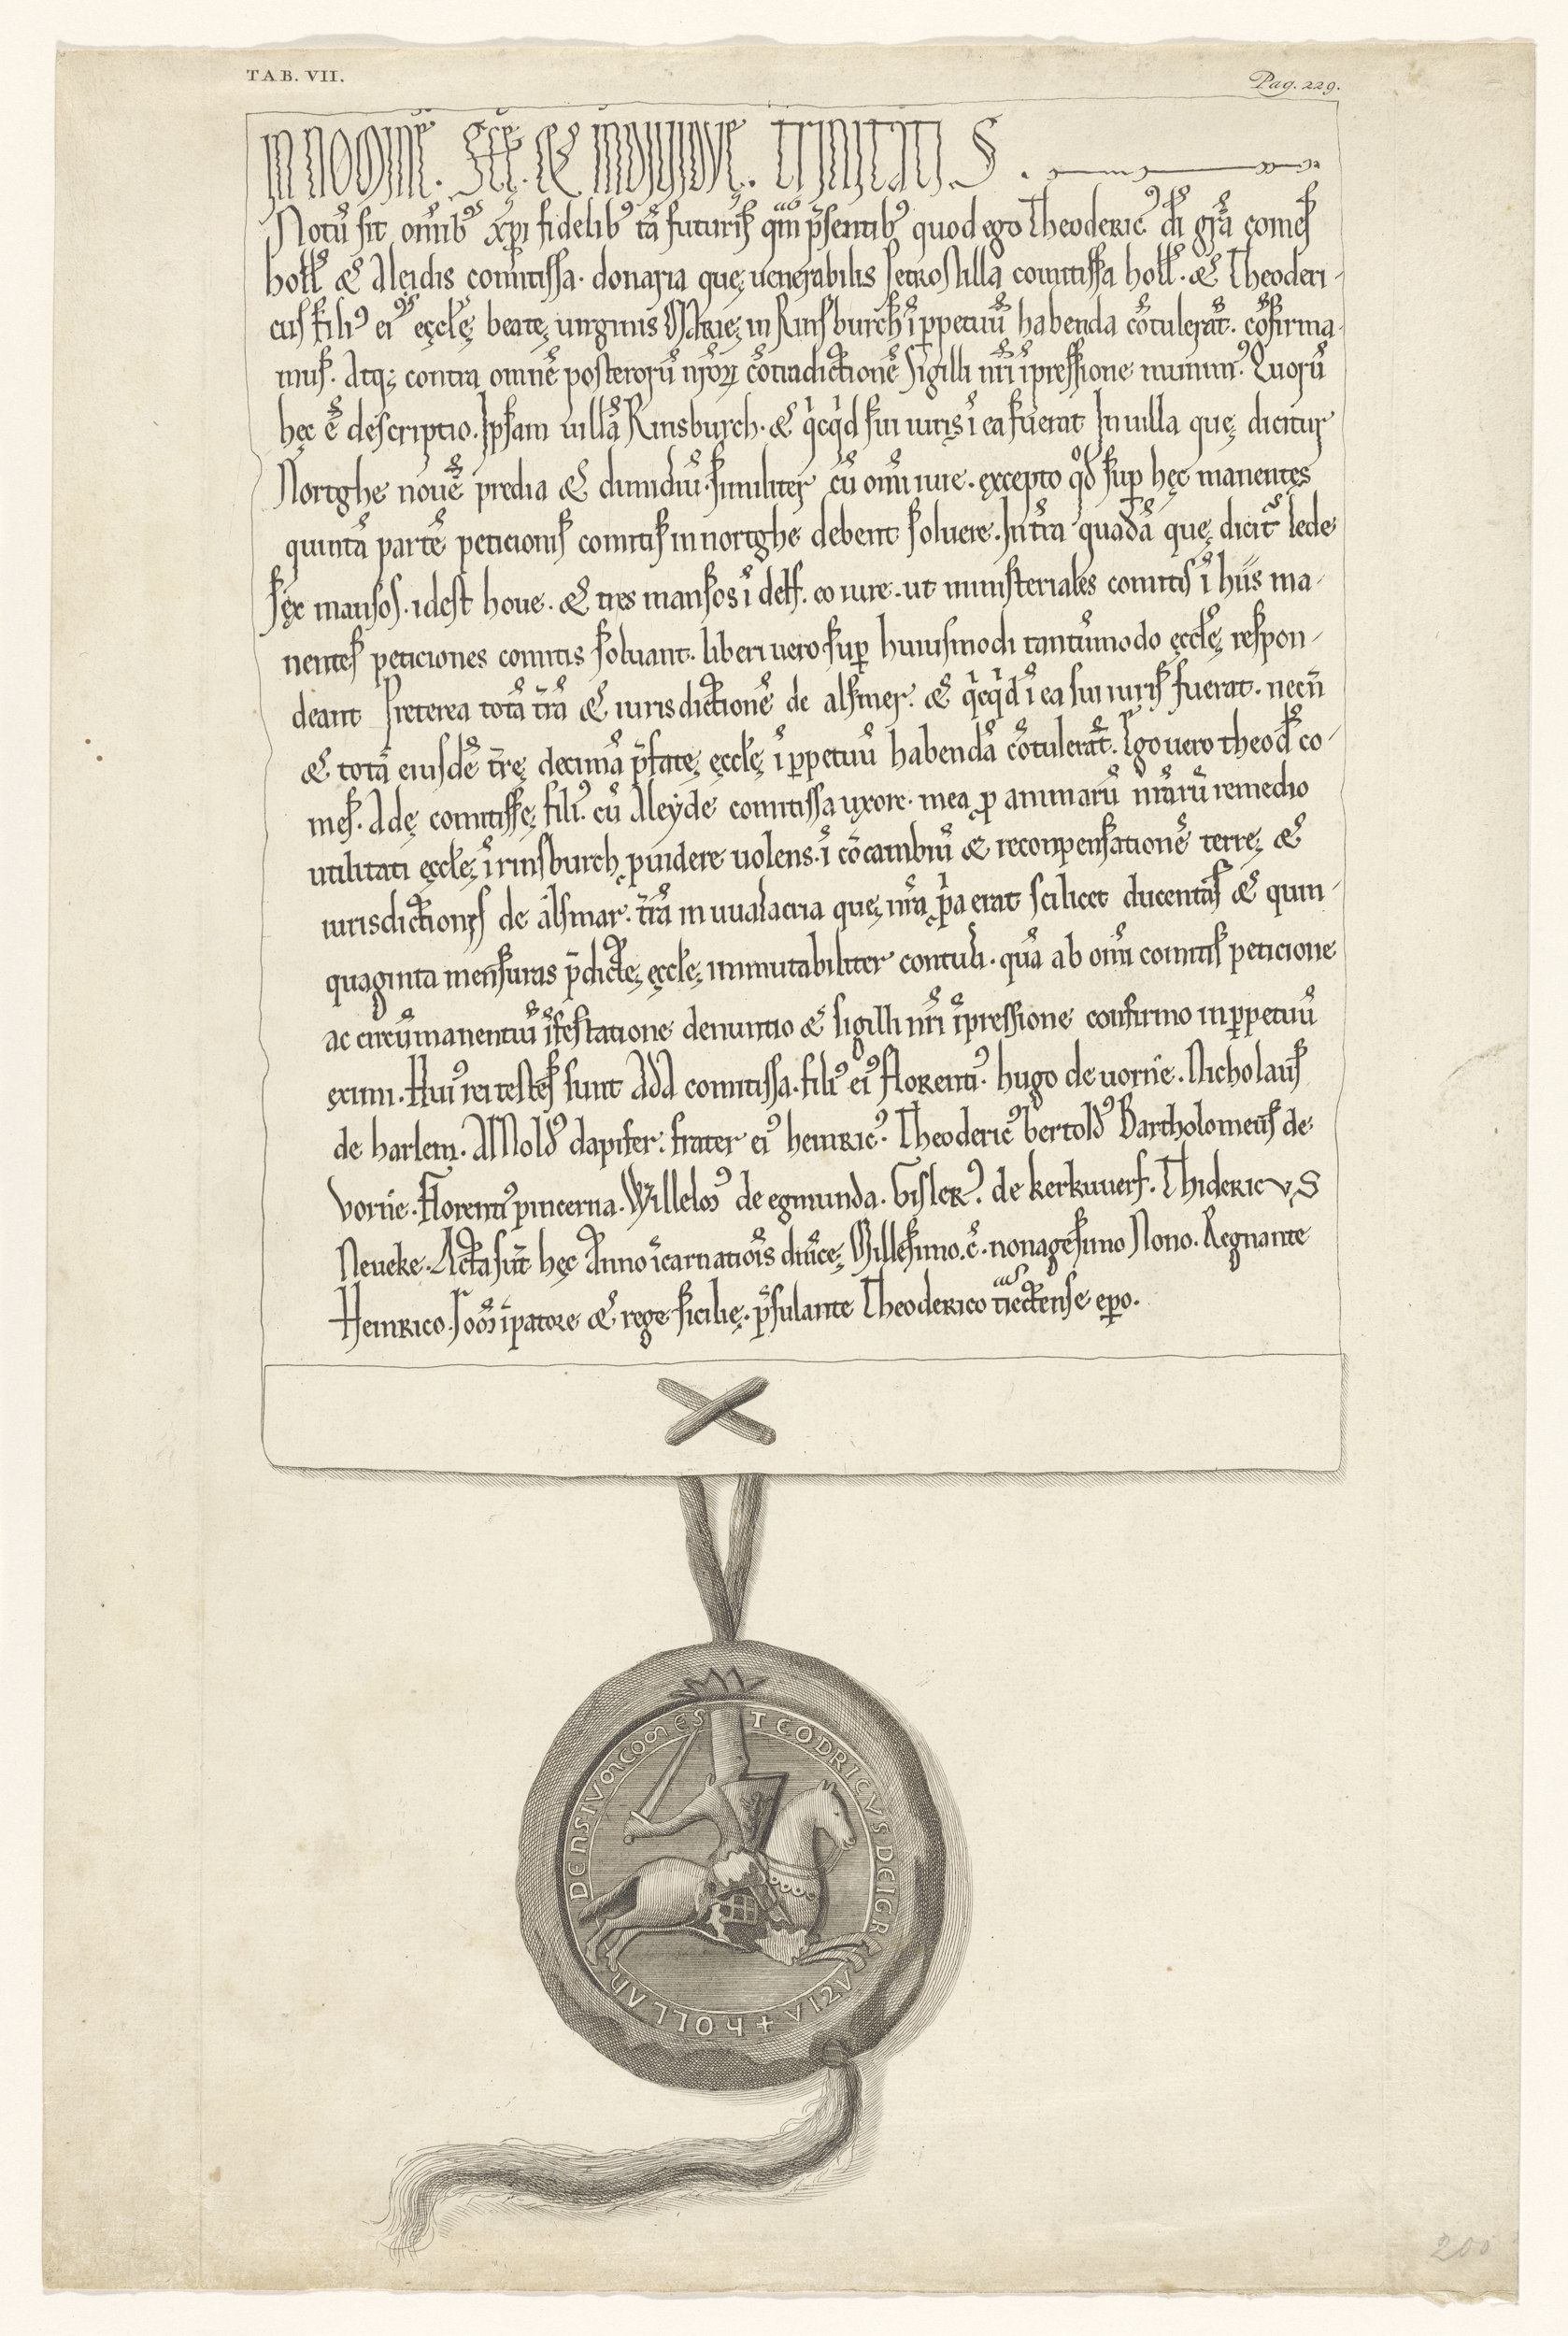 TAB. VII.
Pag. 229.
IN NOMINE. SCE. & INDIVIDVE. TRINITATIS.
Notū sit omib⁹ xp̄i fidelib⁹ tā futuris qm̄ p̄sentib⁹ quod ego Theoderic⁹ dī grā comes
holł & Aleidis comitissa. donaria que uenerabilis petronilla comitissa holł. & Theoderi-
cus fili⁹ ei⁹ ęccłę beatę uirginis Marię in Rinsburch ī ꝑpetuū habenda cōtulerāt. cōfirma-
mus. Atq; contra omnē posterorū nr̄orꝝ cōtradictionē sigilli nr̄i īpressione munim⁹. Quorū
hęc ē descriptio. Ipsam uillā Rinsburch. & qͥcqͥd sui iuris ī ea fuerat In uilla quę dicitur
Nortghe nouē predia & dimidiū. similiter cū omī iure. excepto qd̄ sup̄ hęc manentes
quintā partē peticionis comitis in nortghe debent soluere. In tr̄a quadā quę dicit̄ lede
sex mansos. idest houe. & tres mansos ī delf. eo iure. ut ministeriales comitis ī hiis ma-
nentes peticiones comitis soluant. liberi uero sup̄ huiusmodi tantūmodo ęccłę respon-
deant Preterea totā tr̄ā & iurisdictionē de alsmer. & qͥcqͥd ī ea sui iuris fuerat. necn̄
& totā eiusdē tr̄ę decimā p̄fatę ęccłę ī ꝑpetuū habendā cōtulerāt. Ego uero theod̄ co-
mes. Adę comitissę fili⁹. cū Aleyde comitissa uxore mea ꝓ animarū nr̄arū remedio
utilitati ęccłę ī rinsburch ꝓuidere uolens. ī cōcambiū & reconpensationē terrę &
iurisdictionis de alsmar. tr̄ā in uualacria quę nr̄a ꝓp̄a erat scilicet ducentas & quin-
quaginta mensuras p̄dictę ęccłę immutabiliter contuli. quā ab omī comitis peticione
ac circūmanentiū īfestatione denuntio & sigilli nr̄i īpressione confirmo in ꝑpetuū
exim̄. Hui⁹ rei testes sunt Ada comitissa. fili⁹ ei⁹ florenti⁹. hugo de uorne. Nicholaus
de harlem. Arnold⁹ dapifer. frater ei⁹ heinric⁹. Theoderic⁹ bertold⁹ Bartholomeus de
Vorne. Florenti⁹ pincerna. Willelm⁹ de egmunda. Gisler⁹. de kerkuuerf. Thidericus
Neueke. Acta sūt hęc Anno īcarnatiōis dn̄icę Millesimo. c̄. nonagesimo Nono. Regnante
Heinrico. īpatore & rege sicilię. p̄sulante Theoderico tiectense ep̄o.
TEODRICVS DEI GRACIA + HOLLANDENSIVM COMES
200